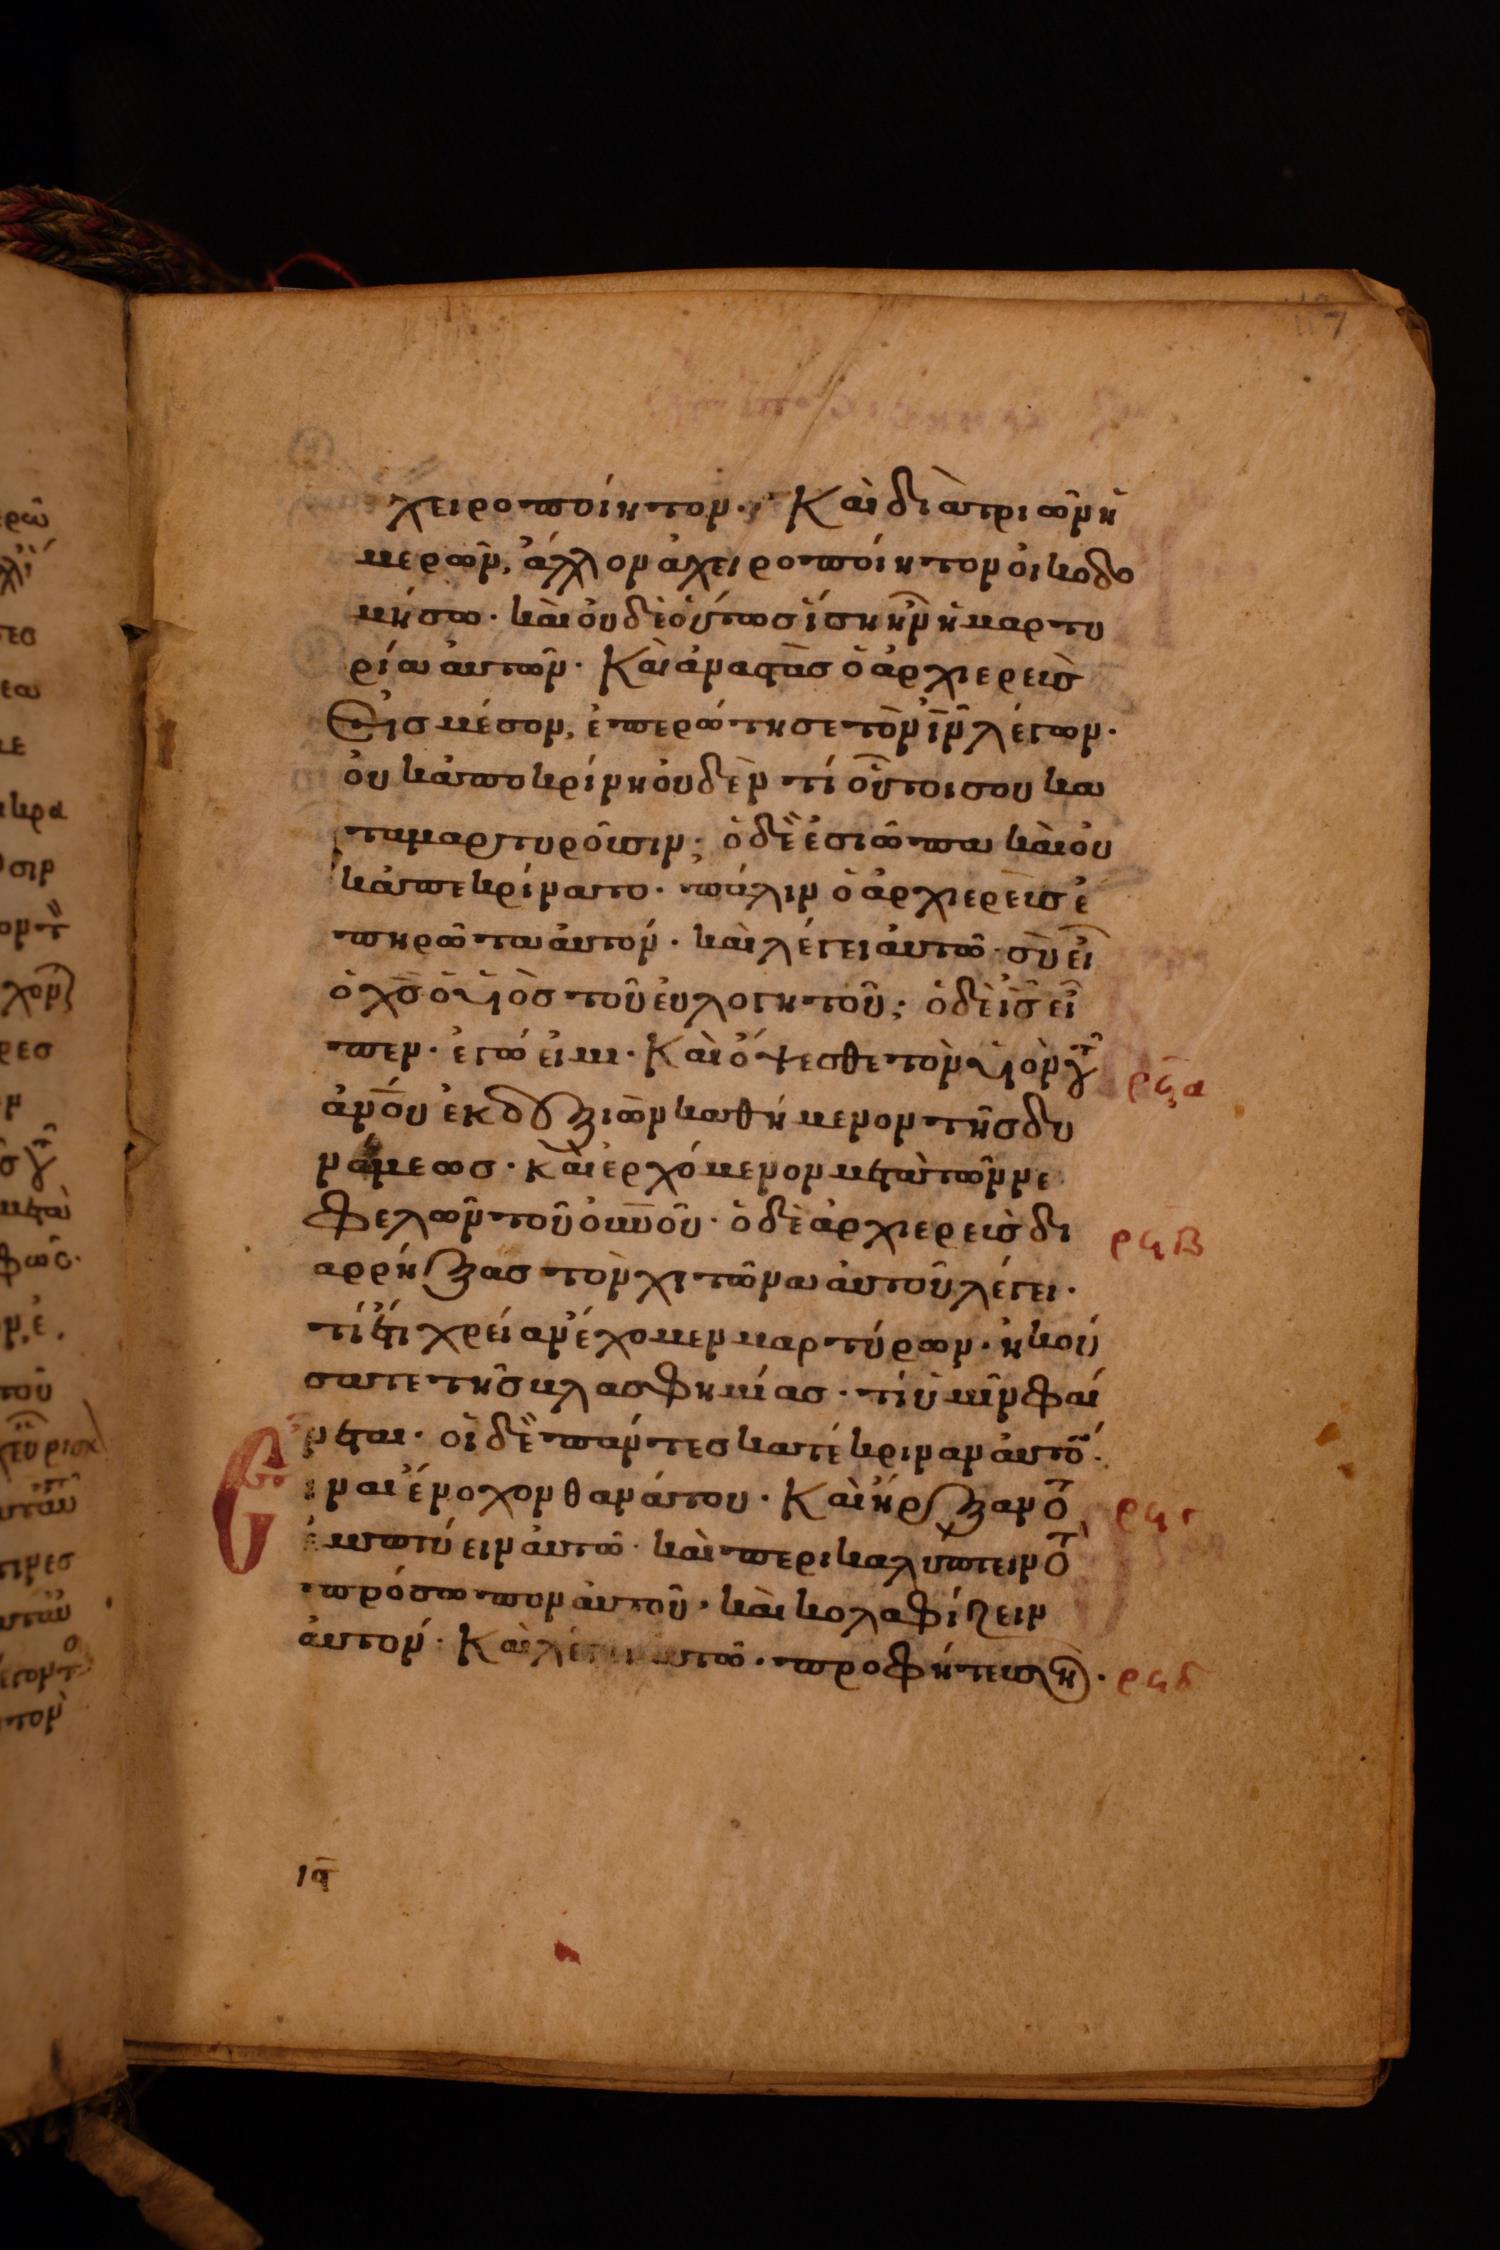 χειροποίητον· Καὶ διὰ τριῶν ἡ
μερῶν, ἄλλον ἀχειροποίητον οἰκοδο
μήσω· καὶ οὐδὲ οὕτως ἴση ἦν ἡ μαρτυ
ρία αὐτῶν· Καὶ ἀναστὰς ὁ ἀρχιερεὺς
εἰς μέσον, ἐπερώτησε τὸν ἰν λέγων·
οὐκ ἀποκρίνη οὐδὲν τί οὗτοι σου κα
ταμαρτυροῦσιν; ὁ δὲ ἐσιῶπα καὶ οὐ
κ ἀπεκρίνατο· πάλιν ὁ ἀρχιερεὺς ἐ
πηρῶτα αὐτόν· καὶ λέγει αὐτῶ· σὺ εἶ
ὁ χς ὁ υἱὸς τοῦ εὐλογητοῦ; ὁ δὲ ις εἶ
πεν· ἐγώ εἰμι· Καὶ ὄψεσθε τὸν υἱὸν τ
ἀνου ἐκ δεξιῶν καθήμενον τῆς δυ
νάμεως· καὶ ἐρχόμενον μετὰ τῶν νε
φελῶν τοῦ οὐνοῦ· ὁ δὲ ἀρχιερεὺς δι
αρρήξας τὸν χιτῶνα αὐτοῦ λέγει·
τί ἔτι χρείαν ἔχομεν μαρτύρων· ἠκού
σατε τῆς βλασφημίας· τί ὑμῖν φαί
νεται· οἱ δὲ πάντες κατέκριναν αὐτὸ·
εἶναι ἔνοχον θανάτου· Καὶ ἤρξαν τ
ἐμπτύειν αὐτῶ· καὶ περικαλύπτειν τ
πρόσωπον αὐτοῦ· καὶ κολαφίζειν
αὐτόν· Καὶ λέγειν αὐτῶ· προφήτευσ·
ρϟα
ρϟβ
ρϟγ
ρϟδ
ις
117